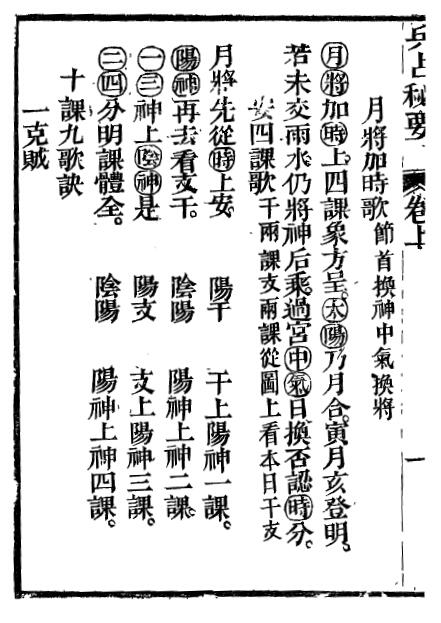 兵占秘要 卷上 一
月將加時歌 節首換神中氣換將
月將加時上四課象方呈。太陽乃月合。寅月亥登明。
若未交雨水。仍將神后乘。過宮中氣日換否認時分。
安四課歌 干兩課支兩課從圖上看本日干支
月將先從時上安。 陽干 干上陽神一課。
陽神再去看支干。 陰陽 陽神上神二課。
一三神上陰神是 陽支 支上陽神三課。
二四分明課體全。 陰陽 陽神上神四課。
十課九歌訣
一克賊